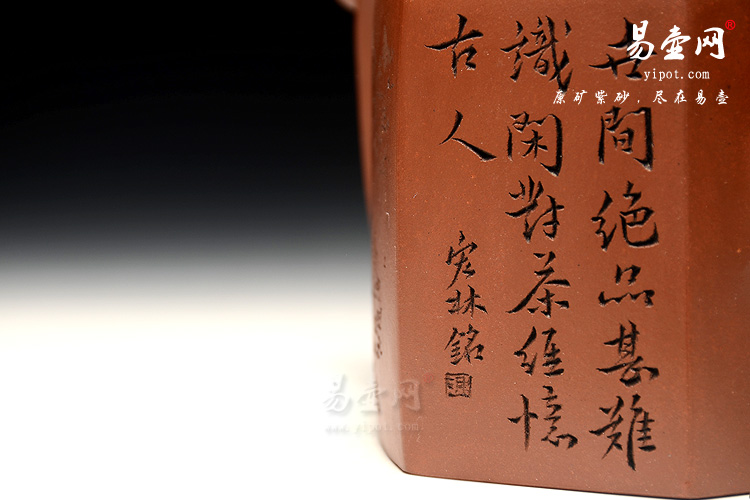 世間绝品甚難
識閑對茶經憶
古人
宏林銘
易壶网®
yipot.com
原矿紫砂，尽在易壶
易壶网
www.yipot.com